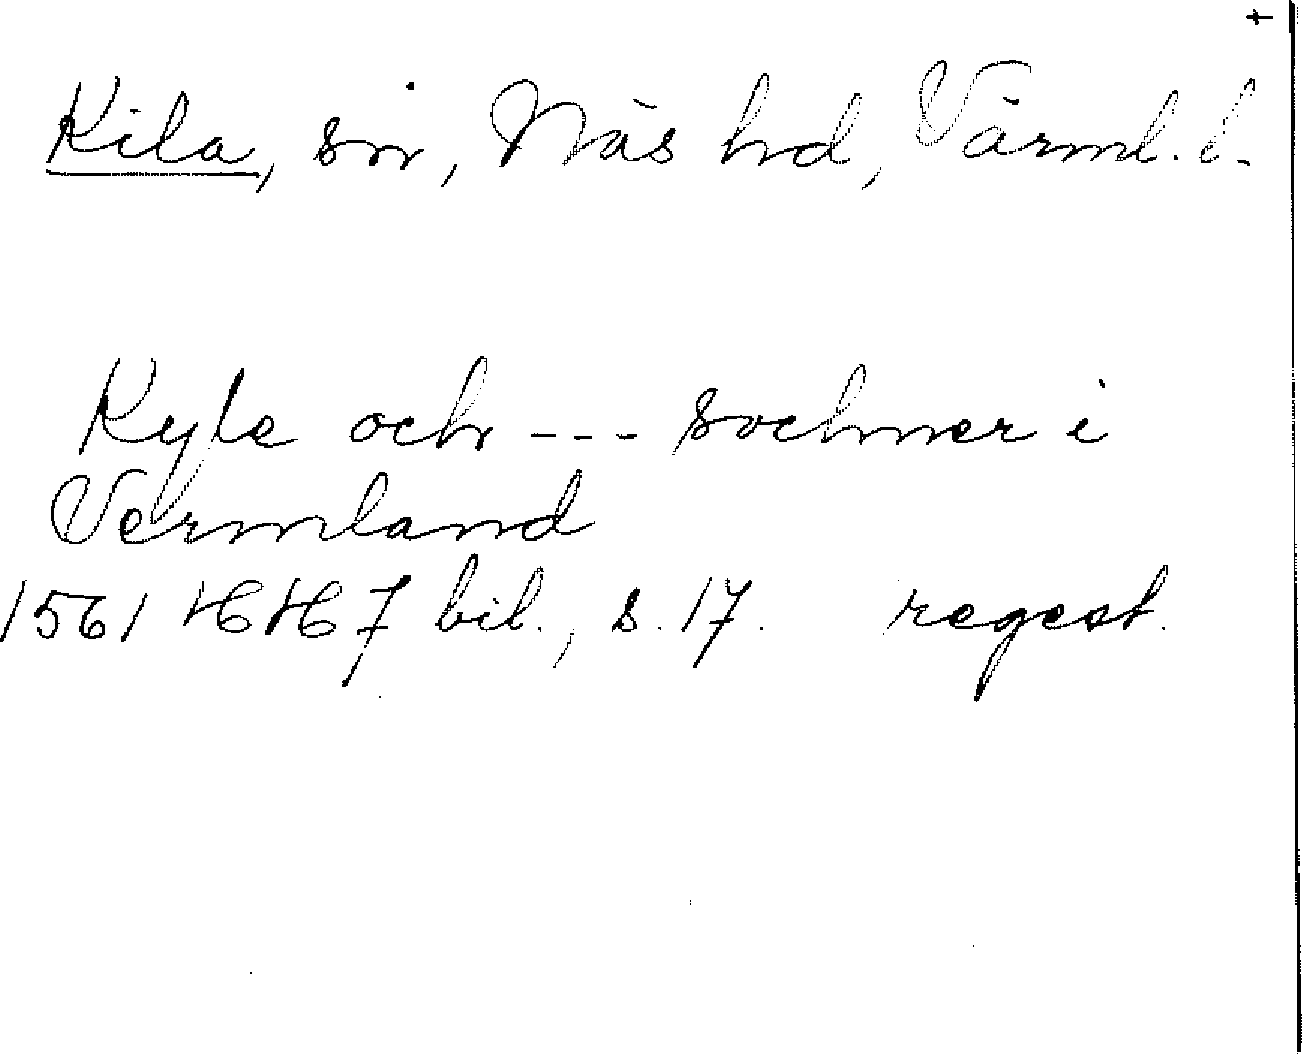 +
Kila, sn, Näs hd, Värml. l.
Kyle och --- sochner i
Vermland
1561 HH 7 bil., s. 17. regest.